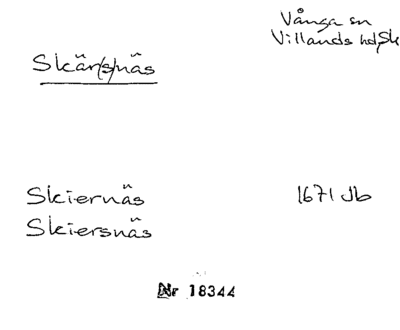 Vånga sn
Villands hd, Sk
Skär(s)näs
Skiernäs 1671 Jb
Skiersnäs
Nr 18344